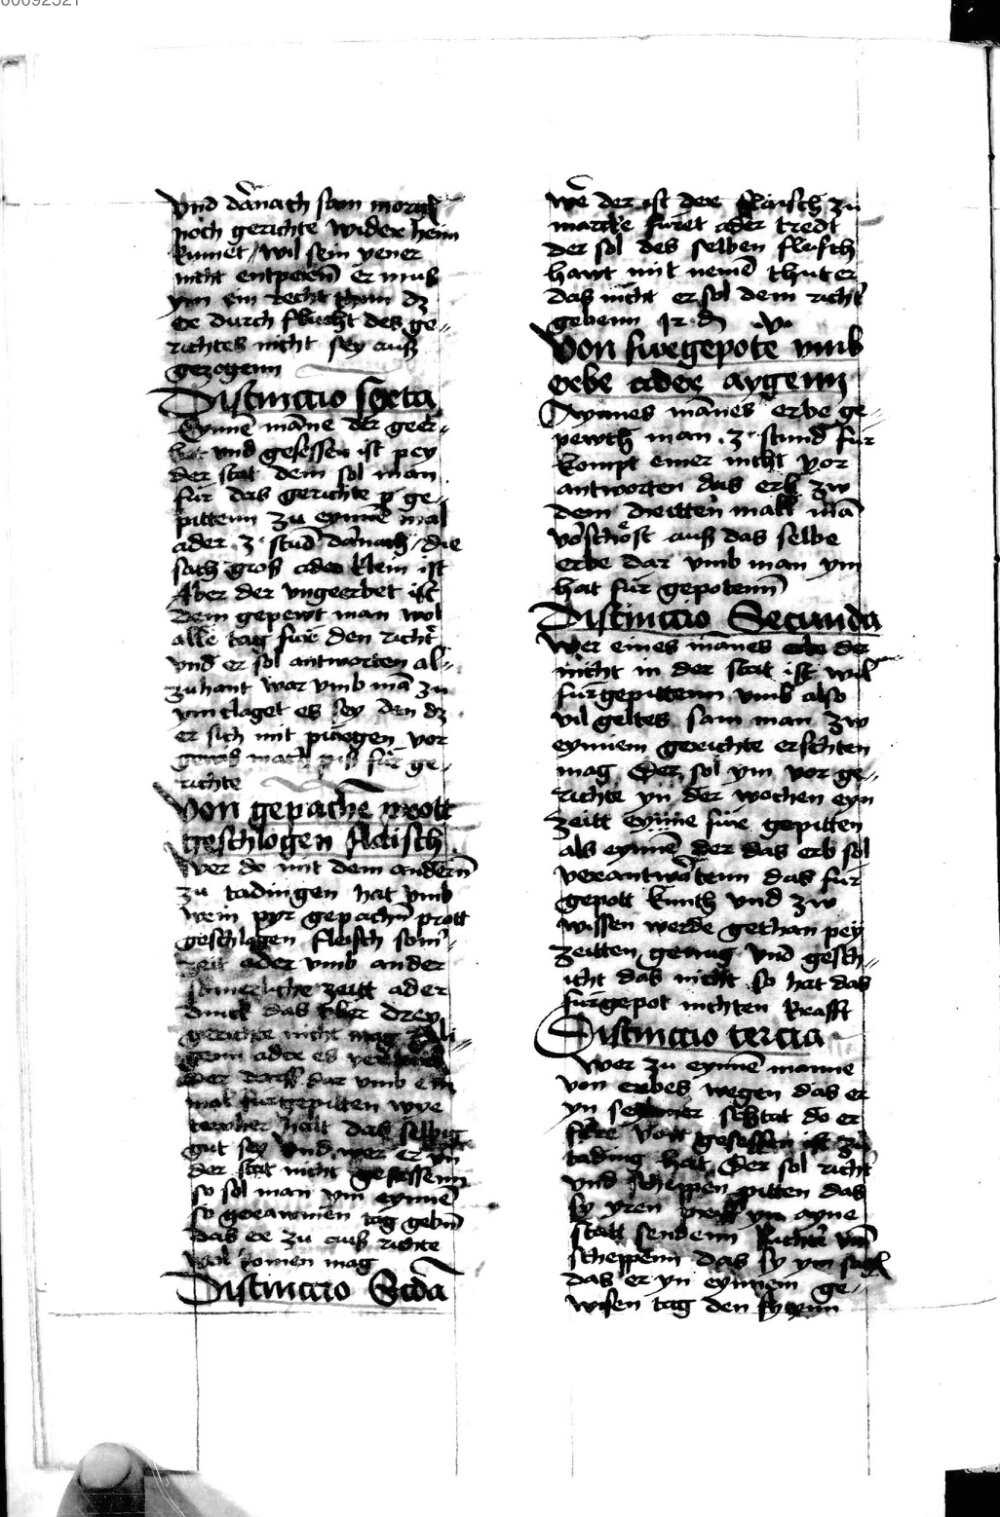 00092521
vnd dãnach sam morgẽ
noch gerichte wider heim
kumet / wil sein yener
nicht entperenn̄ er mus
ym ein recht thun dz
er durch flucht des ge„
richtes nicht sey auß
gezogenn
Distinctio sexta
Eynnē mãne der geer„
bet vnd gesessen ist pey
der stat dem sol man
für das gerichte p̄ ge„
pittenn zu eynnē mal
ader .3. stūd dãnach / die
sach groß ader klein ist
Aber der vngeerbet ist
dem gepewt man wol
alle tag fur den richt̄
vnd er sol antworten al„
zuhant war vmb mã zu
ym claget es sey den dz
er sich mit pürgen vor
gewis mach piß für ge„
richte
Von gepachē prott
geschlogen fleisch
Wer do mit dem andern̄
zu tadingen hat vmb
wein pyr gepachn̄ prott
geschlagen fleisch som̄„
zeit ader vmb ander
somerliche zeitt ader
dinck das vber drey
gerichte nicht mag
genn ader es
der darff dar vmb ein
mal furgepitten wye
tewher halt das selbig
gut sey vnd wer er yn
der stat nicht gesessenn
so sol man ym eynnē
so gerawmen tag gebn̄
das er zu auß richte
wol komen mag
Distinctio Scda
wē der ist der fleisch zu
marckte furet ader tredt
der sol des selben fleisch
hawt mit nemē thut er
das nicht er sol dem richt̄
gebenn Jr. d̄ .v.
Von furgepote vmb
erbe ader aygenn
Aynnes mãnes erbe ge„
pewth man .3. stund für
kompt einer nicht vor
antworten das erb zw
dem dreitten mall mã
vosthöst auß das selbe
erbe dar vmb man ym
hat für gepotenn̄
Distinctio Secunda
Wer eines mãnes erbe der
nicht in der stat ist wil
fürgepittenn vmb also
vil geltes sam man zw
eynnem gerichte ersteten
mag Der sol ym vor ge„
richte yn der wochen eyn
zeitt eynne fur gepitten
als eynnē der das erb sol
verantwortenn das für
gepott kunth vnd zw
wissen werde gethan pey
zeitten genug vnd gesch„
icht das nicht so hat das
fürgepot nichten krafft
Distinctio tercia
Wer zu eynnē manne
von erbes wegen das er
yn seynner schtat do er
ferre von gesessen ist zu
tading hat Der sol richt̄
vnd scheppen pitten das
sy yren prieff yn ayne
statt sendenn Richter vnd
scheppenn das sy ym
das er yn eynnem ge„
wisen tag den